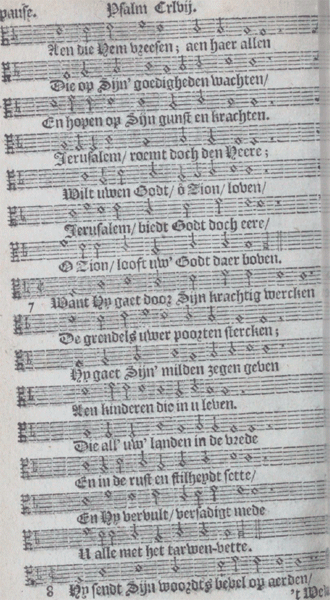 pause. Psalm Cxlvij.
Aen die Hem vreesen; aen haer allen
Die op Sijn' goedigheden wachten/
En hopen op Sijn gunst en krachten.
Jerusalem/ roemt doch den Heere;
Wilt uwen Godt/ ô Sion/ loven/
Jerusalem/ biedt Godt doch eere/
O Sion/ looft uw' Godt daer boven.
7 Want Hy gaet door Sijn krachtig wercken
De grendels uwer poorten stercken;
Hy gaet Sijn' milden zegen geven
Aen kinderen die in u leven.
Die all' uw' landen in de vrede
En in de rust en stilheydt sette/
En Hy vervult/ versadigt mede
U alle met het tarwen-vette.
8 Hy sendt Sijn woordts bevel op aerden/
't Welk